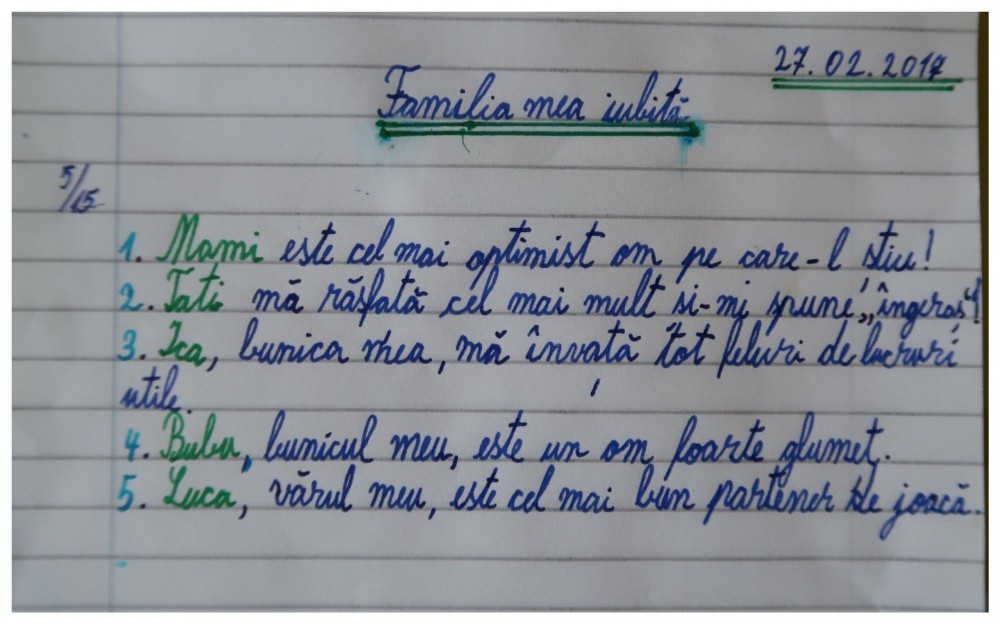 27.02.2017
Familia mea iubită
5/15
1. Mami este cel mai optimist om pe care-l știu!
2. Tati mă răsfață cel mai mult și-mi spune „îngeraș”!
3. Ica, bunica mea, mă învață tot feluri de lucruri
utile.
4. Bubu, bunicul meu, este un om foarte glumeț.
5. Luca, vărul meu, este cel mai bun partener de joacă.